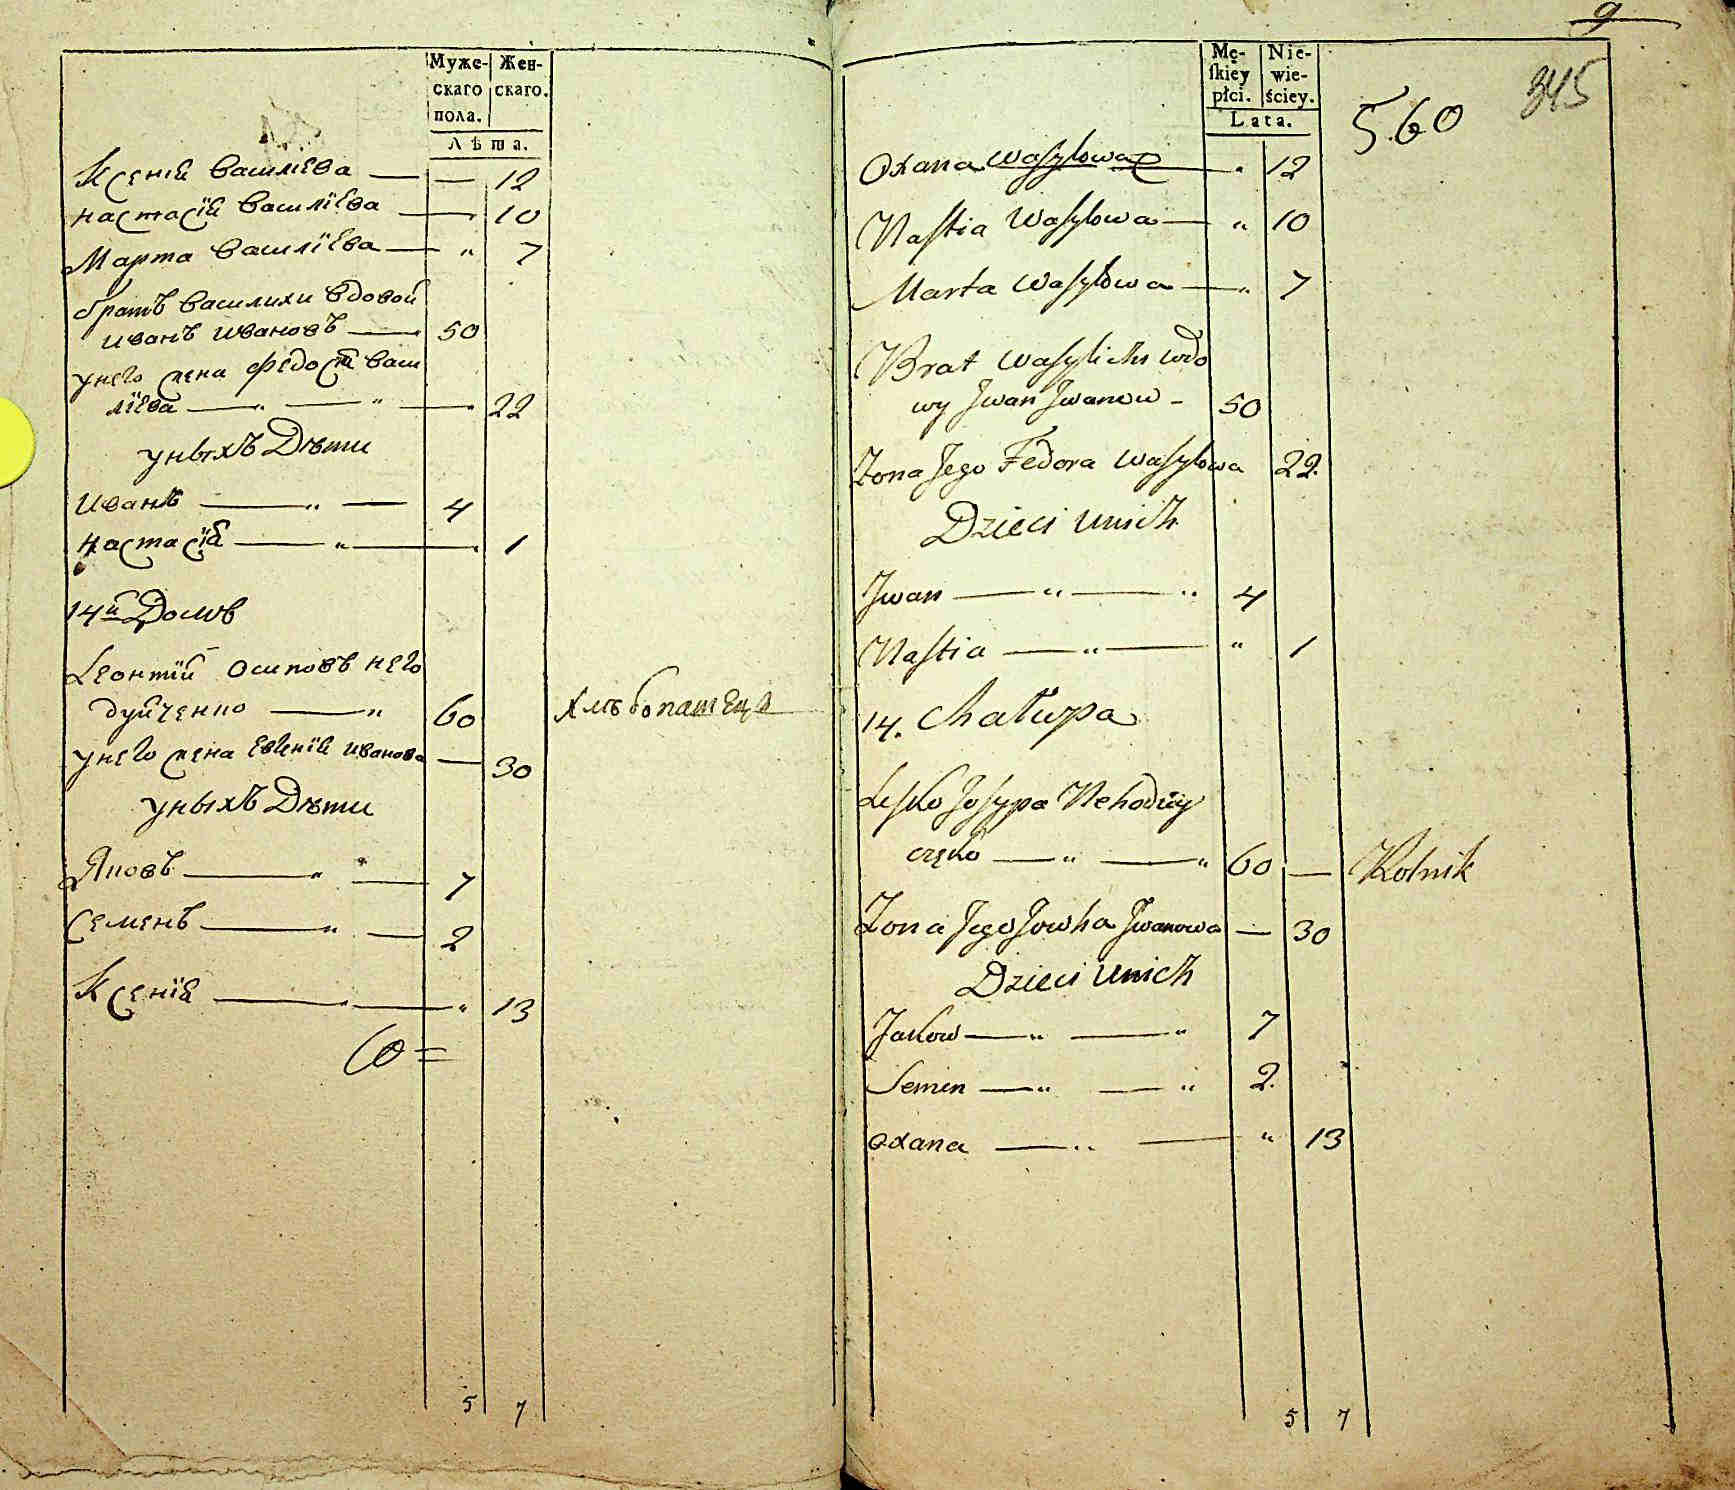 Муже- Жен-
скаго скаго.
пола.
Лѣта.
Ксеніи Василіева — — 12
Настасіи Василіева — 10
Марта Василіева — " 7
братъ Василихи Вдовой
Иванъ Ивановъ — 50
унего жена Федосіи Васи
ліева — " — " — 22
уныхъ Дѣти
Иванъ — " — 4
Настасіи — " — 1
14й Домъ
Леонтіи Осиповъ Него
дуйченко — " 60 хлѣбопашецъ
унего жена Евгеніи Иванова — 30
уныхъ Дѣти
Яковъ — " — 7
Семенъ — " — 2
Ксеніи — " — " 13
5 7
9
345
Mę- Nie-
skiey wie-
płci. ściey.
Lata.
5.60
Oxana Wasylowa — " 12
Nastia Wasylowa — " 10
Marta Wasylowa — " 7
Brat Wasylichi wdo
wy Jwan Jwanow - 50
Zona Jego Fedora Wasylowa 22.
Dzieci unich
Jwan — " — " 4
Nastia — " — " 1
14. Chałupa
Lesko Josypa Nehoduy
częko — " — " 60 — Rolnik
Zona Jego Jowha Jwanowa — 30
Dzieci unich
Jakow — " — " 7
Semen — " — " 2.
oxana — " — " 13
5 7